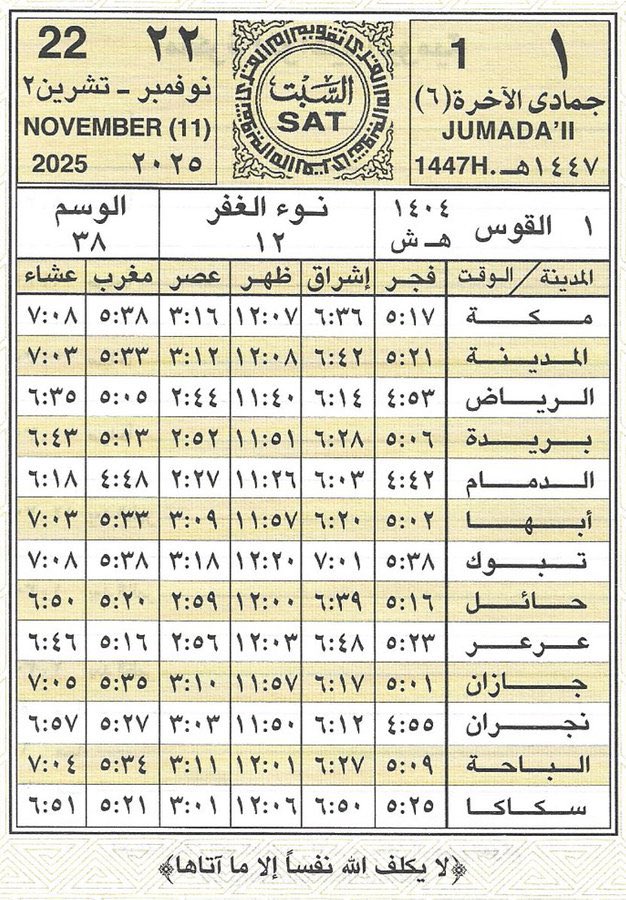 ١ 1
جمادى الآخرة (٦)
JUMADA'II
1447H. ١٤٤٧هـ
السبت
SAT
22 ٢٢
نوفمبر - تشرين٢
NOVEMBER (11)
2025 ٢٠٢٥
١ القوس ١٤٠٤ هـ ش
نوء الغفر
١٢
الوسم
٣٨
المدينة / الوقت فجر إشراق ظهر عصر مغرب عشاء
مكة ٥:١٧ ٦:٣٦ ١٢:٠٧ ٣:١٦ ٥:٣٨ ٧:٠٨
المدينة ٥:٢١ ٦:٤٢ ١٢:٠٨ ٣:١٢ ٥:٣٣ ٧:٠٣
الرياض ٤:٥٣ ٦:١٤ ١١:٤٠ ٢:٤٤ ٥:٠٥ ٦:٣٥
بريدة ٥:٠٦ ٦:٢٨ ١١:٥١ ٢:٥٢ ٥:١٣ ٦:٤٣
الدمام ٤:٤٢ ٦:٠٣ ١١:٢٦ ٢:٢٧ ٤:٤٨ ٦:١٨
أبها ٥:٠٢ ٦:٢٠ ١١:٥٧ ٣:٠٩ ٥:٣٣ ٧:٠٣
تبوك ٥:٣٨ ٧:٠١ ١٢:٢٠ ٣:١٨ ٥:٣٨ ٧:٠٨
حائل ٥:١٦ ٦:٣٩ ١٢:٠٠ ٢:٥٩ ٥:٢٠ ٦:٥٠
عرعر ٥:٢٣ ٦:٤٨ ١٢:٠٣ ٢:٥٦ ٥:١٦ ٦:٤٦
جازان ٥:٠١ ٦:١٧ ١١:٥٧ ٣:١٠ ٥:٣٥ ٧:٠٥
نجران ٤:٥٥ ٦:١٢ ١١:٥٠ ٣:٠٣ ٥:٢٧ ٦:٥٧
الباحة ٥:٠٩ ٦:٢٧ ١٢:٠١ ٣:١١ ٥:٣٤ ٧:٠٤
سكاكا ٥:٢٥ ٦:٥٠ ١٢:٠٦ ٣:٠١ ٥:٢١ ٦:٥١
﴿لا يكلف الله نفساً إلا ما آتاها﴾